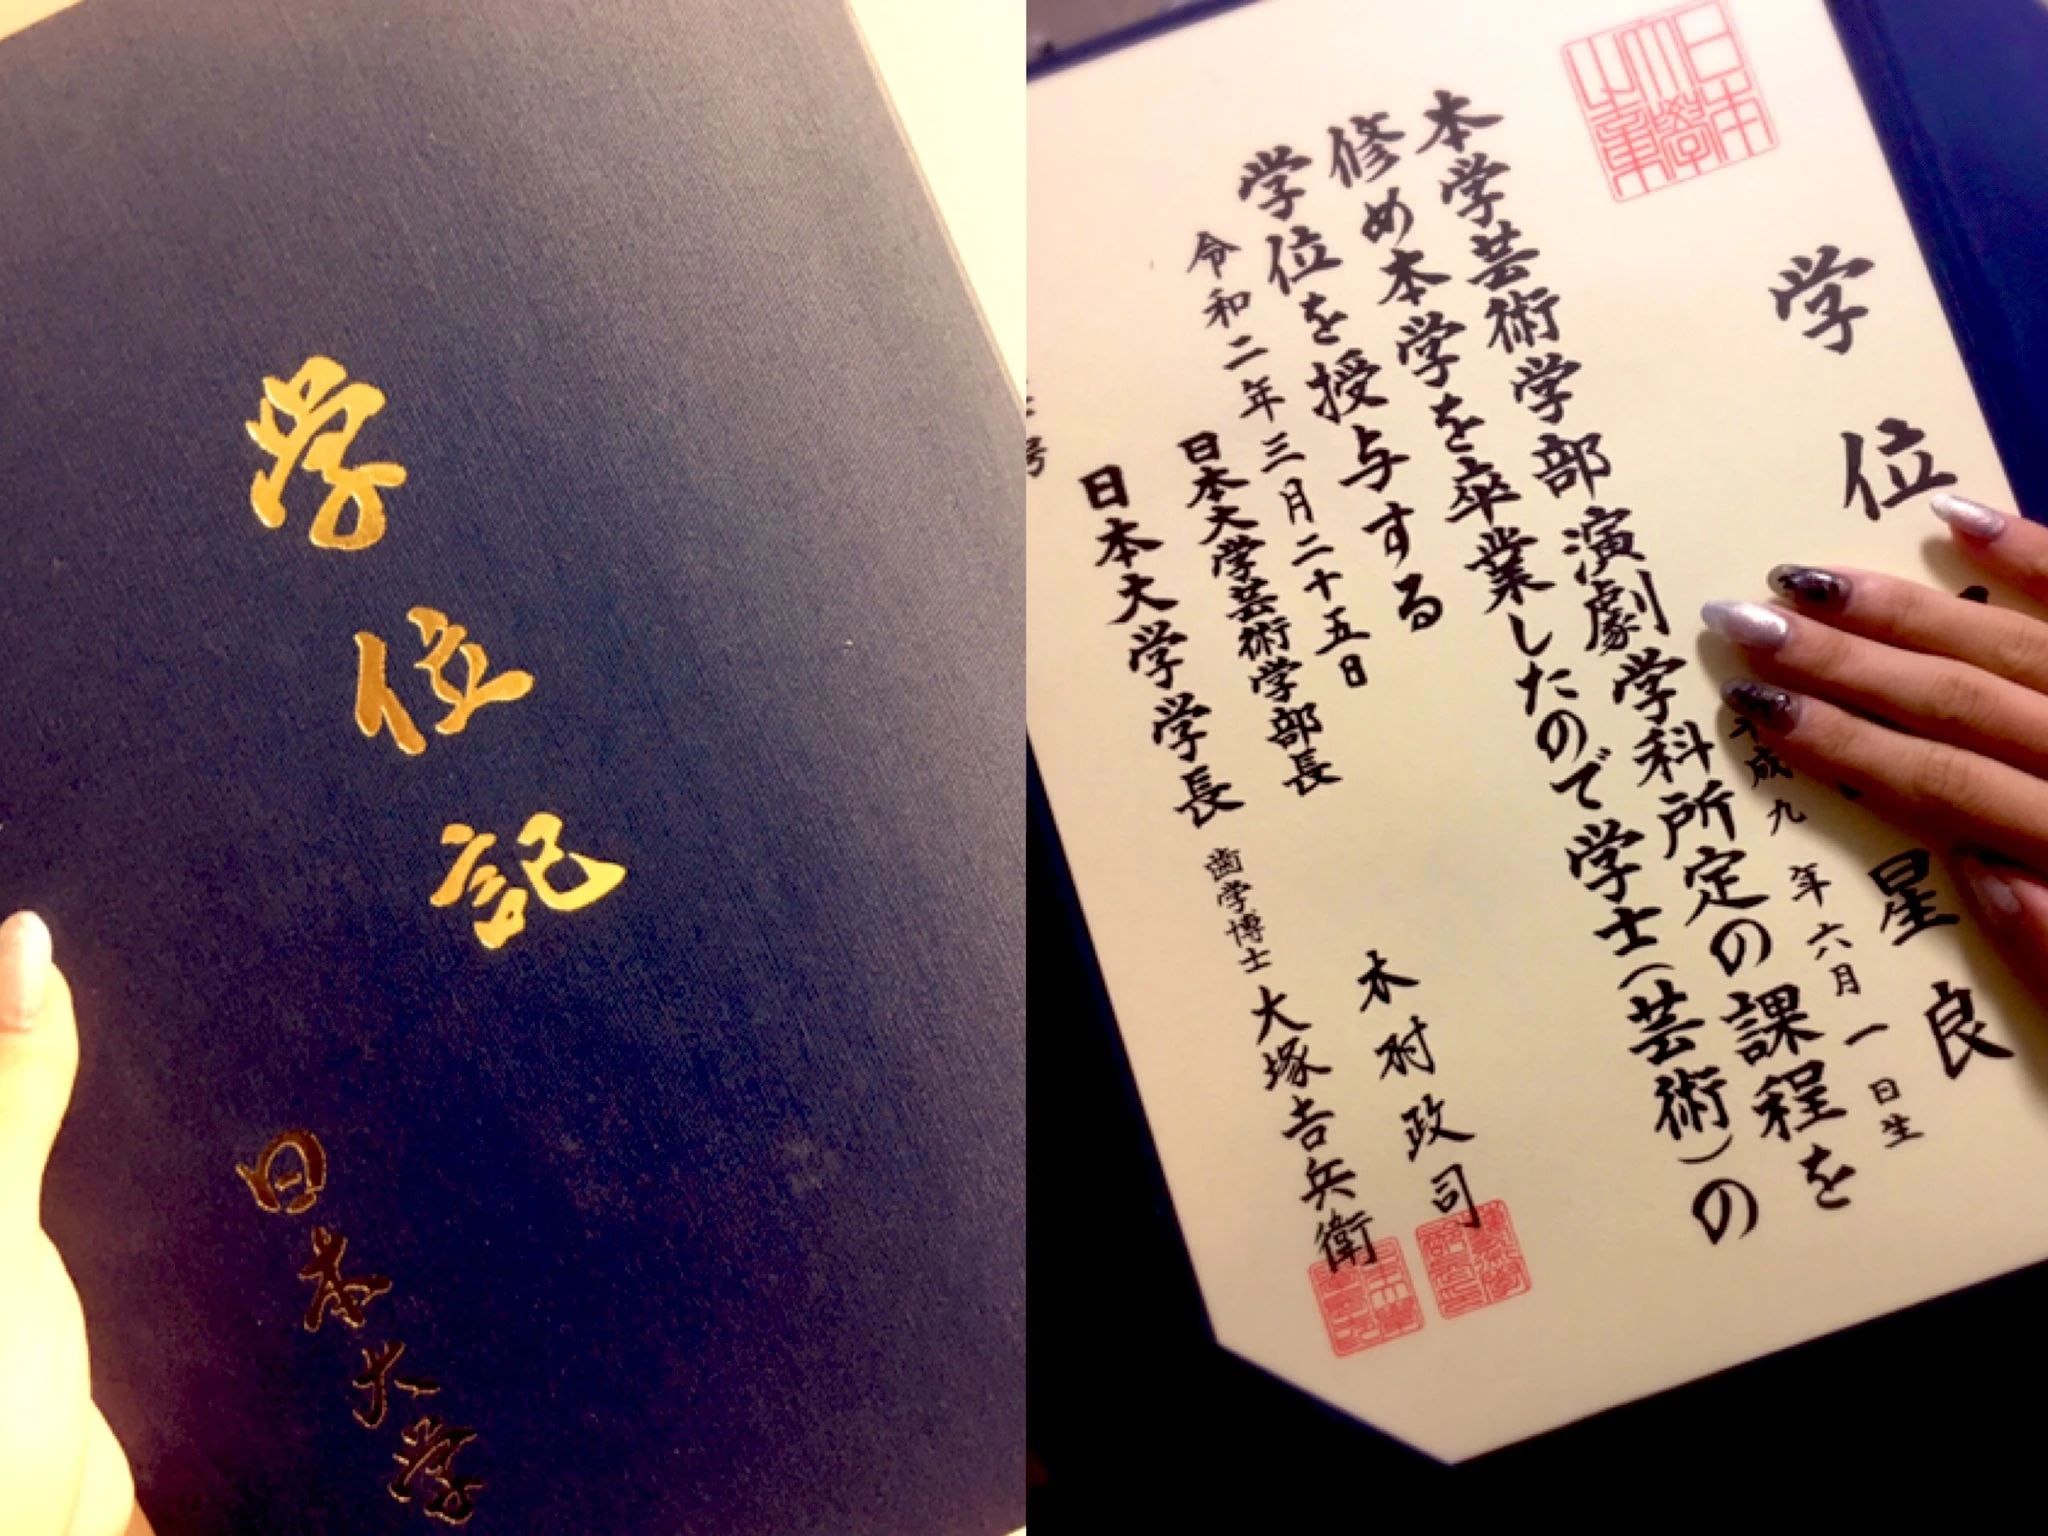 学位記
日本大学
学位
星良
平成九年六月一日生
本学芸術学部演劇学科所定の課程を
修め本学を卒業したので学士(芸術)の
学位を授与する
令和二年三月二十五日
日本大学芸術学部長 木村政司
日本大学学長 歯学博士 大塚吉兵衛
号